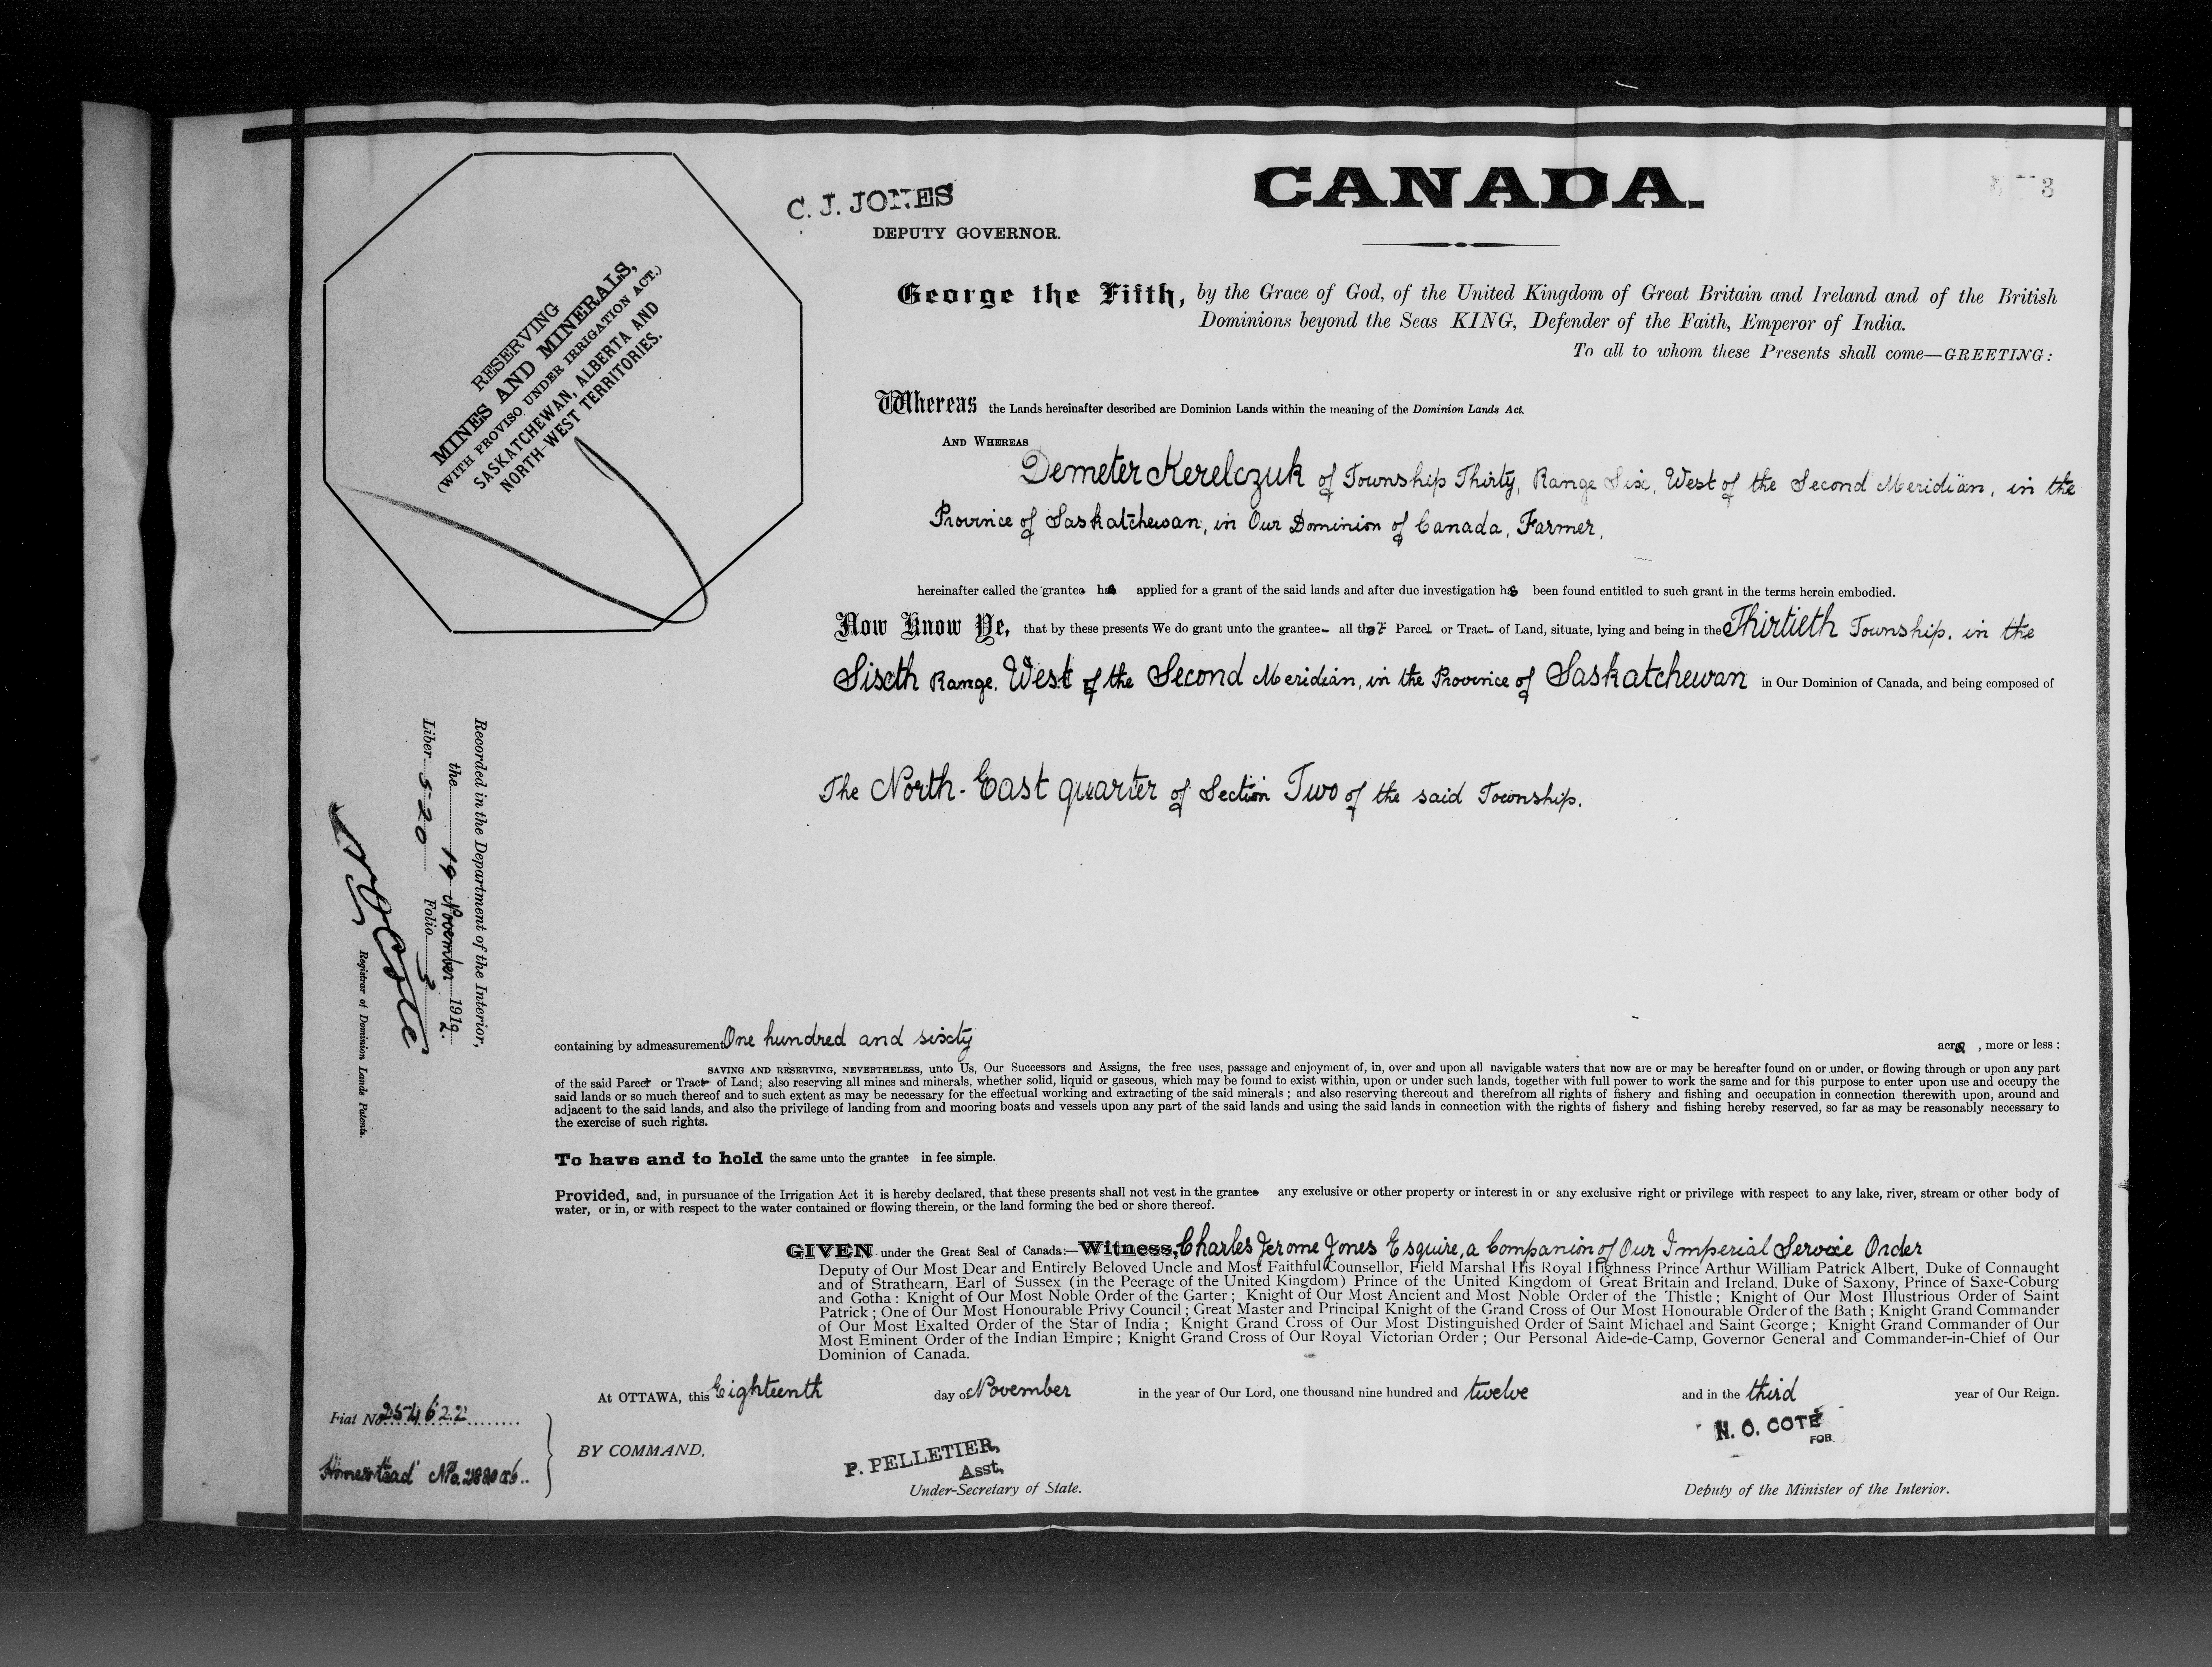 CANADA.
3
C. J. JONES
DEPUTY GOVERNOR.
RESERVING
MINES AND MINERALS,
(WITH PROVISO UNDER IRRIGATION ACT.)
SASKATCHEWAN, ALBERTA AND
NORTH-WEST TERRITORIES.
George the Fifth, by the Grace of God, of the United Kingdom of Great Britain and Ireland and of the British
Dominions beyond the Seas KING, Defender of the Faith, Emperor of India.
To all to whom these Presents shall come—GREETING:
Whereas the Lands hereinafter described are Dominion Lands within the meaning of the Dominion Lands Act.
AND WHEREAS
Demeter Kerelczuk of Township Thirty, Range Six, West of the Second Meridian, in the
Province of Saskatchewan, in Our Dominion of Canada, Farmer,
hereinafter called the grantee has applied for a grant of the said lands and after due investigation has been found entitled to such grant in the terms herein embodied.
Now Know Ye, that by these presents We do grant unto the grantee- all that Parcel or Tract- of Land, situate, lying and being in the Thirtieth Township, in the
Sixth Range, West of the Second Meridian, in the Province of Saskatchewan in Our Dominion of Canada, and being composed of
The North-East quarter of Section Two of the said Township.
Recorded in the Department of the Interior,
the 19 November 1912.
Liber 520 Folio 3
N O Coté
Registrar of Dominion Lands Patents.
containing by admeasurement One hundred and sixty acres, more or less;
SAVING AND RESERVING, NEVERTHELESS, unto Us, Our Successors and Assigns, the free uses, passage and enjoyment of, in, over and upon all navigable waters that now are or may be hereafter found on or under, or flowing through or upon any part
of the said Parcel or Tract of Land; also reserving all mines and minerals, whether solid, liquid or gaseous, which may be found to exist within, upon or under such lands, together with full power to work the same and for this purpose to enter upon use and occupy the
said lands or so much thereof and to such extent as may be necessary for the effectual working and extracting of the said minerals; and also reserving thereout and therefrom all rights of fishery and fishing and occupation in connection therewith upon, around and
adjacent to the said lands, and also the privilege of landing from and mooring boats and vessels upon any part of the said lands and using the said lands in connection with the rights of fishery and fishing hereby reserved, so far as may be reasonably necessary to
the exercise of such rights.
To have and to hold the same unto the grantee in fee simple.
Provided, and, in pursuance of the Irrigation Act it is hereby declared, that these presents shall not vest in the grantee any exclusive or other property or interest in or any exclusive right or privilege with respect to any lake, river, stream or other body of
water, or in, or with respect to the water contained or flowing therein, or the land forming the bed or shore thereof.
GIVEN under the Great Seal of Canada:—Witness, Charles Jerome Jones Esquire, a Companion of Our Imperial Service Order
Deputy of Our Most Dear and Entirely Beloved Uncle and Most Faithful Counsellor, Field Marshal His Royal Highness Prince Arthur William Patrick Albert, Duke of Connaught
and of Strathearn, Earl of Sussex (in the Peerage of the United Kingdom) Prince of the United Kingdom of Great Britain and Ireland, Duke of Saxony, Prince of Saxe-Coburg
and Gotha: Knight of Our Most Noble Order of the Garter; Knight of Our Most Ancient and Most Noble Order of the Thistle; Knight of Our Most Illustrious Order of Saint
Patrick; One of Our Most Honourable Privy Council; Great Master and Principal Knight of the Grand Cross of Our Most Honourable Order of the Bath; Knight Grand Commander
of Our Most Exalted Order of the Star of India; Knight Grand Cross of Our Most Distinguished Order of Saint Michael and Saint George; Knight Grand Commander of Our
Most Eminent Order of the Indian Empire; Knight Grand Cross of Our Royal Victorian Order; Our Personal Aide-de-Camp, Governor General and Commander-in-Chief of Our
Dominion of Canada.
At OTTAWA, this Eighteenth day of November in the year of Our Lord, one thousand nine hundred and twelve and in the third year of Our Reign.
Fiat No 254622
Homestead No.
BY COMMAND,
P. PELLETIER,
Asst,
Under-Secretary of State.
N. O. COTÉ
FOR
Deputy of the Minister of the Interior.